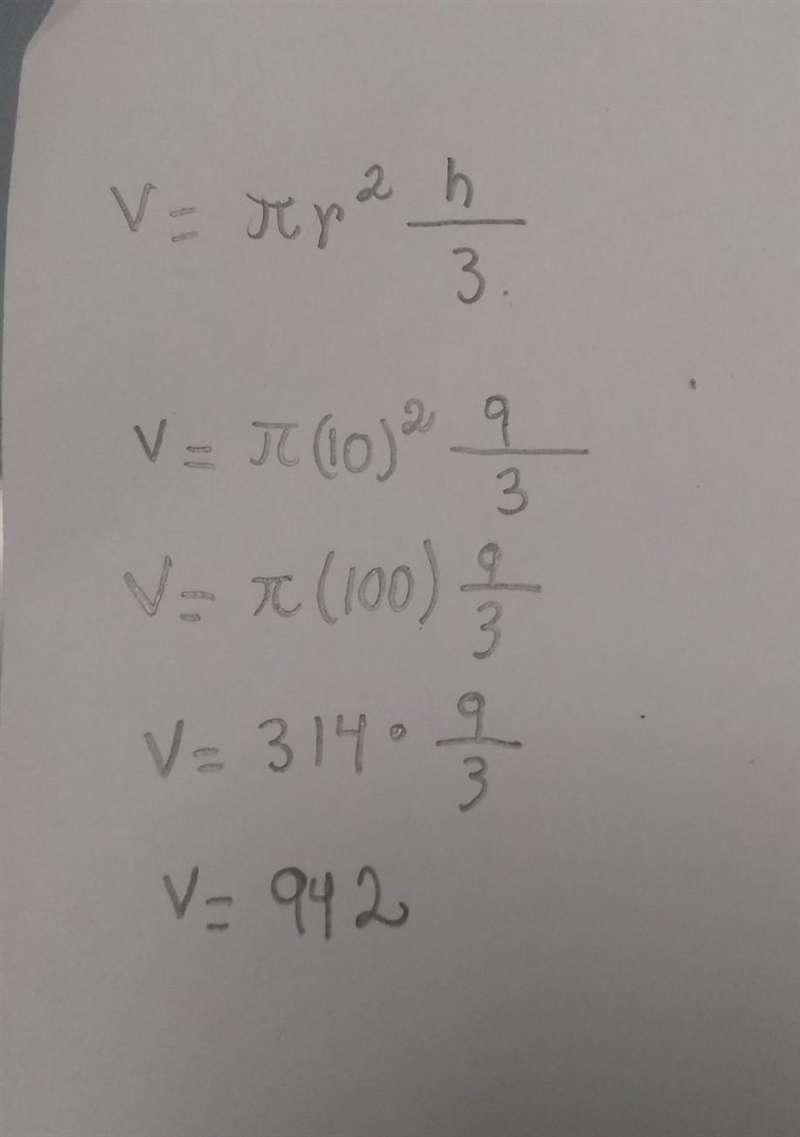 V = πr² h/3.
V = π(10)² 9/3
V = π(100) 9/3
V = 314 • 9/3
V = 942